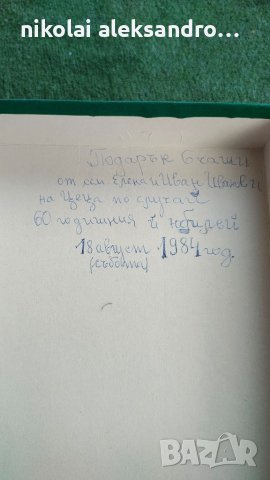 nikolai aleksandro...
Подарък 6 чаши
от сем. Елена и Иван Иванови
на Цеца по случай
60 годишния й юбилей
18 август 1984 год.
(събота)
BAZAR